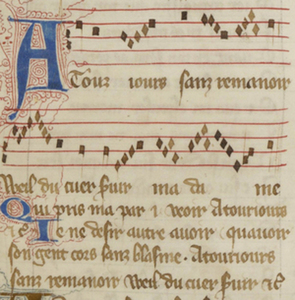 A Tour iours sanz remanoir
Weil du cuer seruir ma da me
Qui pris ma par i veoir A touriours
Ie ne desir autre auoir quauoir
son gent cors sanz blasme. A touriours
sanz remanoir Weil du cuer seruir &c